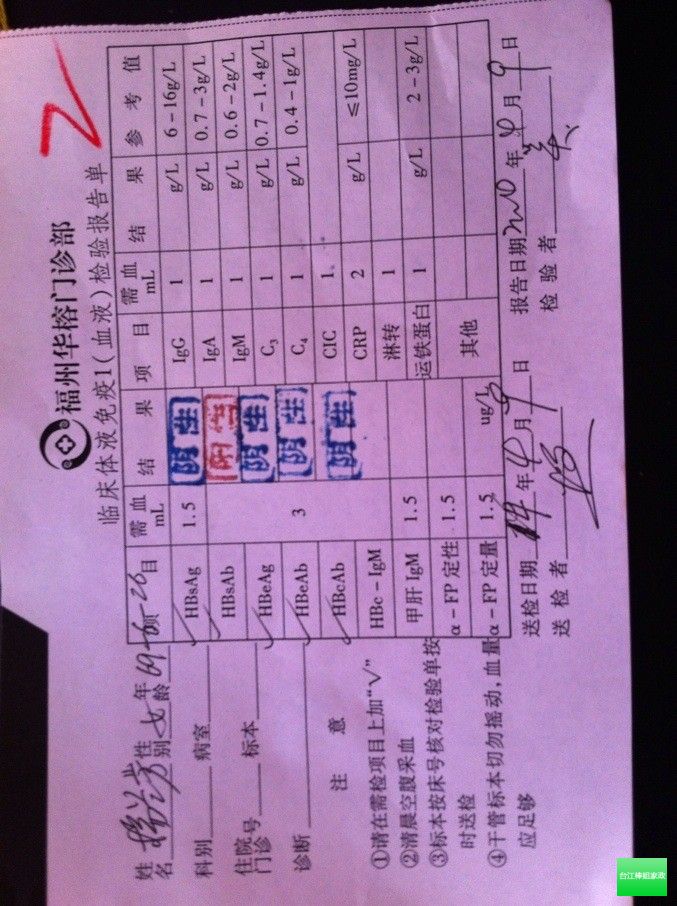 福州华榕门诊部
临床体液免疫1(血液)检验报告单
姓名 性别 女 年龄
科别 病室
住院门诊号 标本
诊断
注意
①请在需检项目上加“√”
②清晨空腹采血
③标本按床号核对检验单按时送检
④干管标本切勿摇动,血量应足够
项目 需血mL 结果 项目 需血mL 结果 参考值
√ HBsAg 1.5 阴性 IgG 1 g/L 6-16g/L
√ HBsAb 3 阳性 IgA 1 g/L 0.7-3g/L
√ HBeAg 阴性 IgM 1 g/L 0.6-2g/L
√ HBeAb 阴性 C3 1 g/L 0.7-1.4g/L
√ HBcAb 阴性 C4 1 g/L 0.4-1g/L
HBc-IgM CIC 1
甲肝IgM 1.5 CRP 2 g/L ≤10mg/L
α-FP定性 1.5 淋转 1
α-FP定量 1.5 ug/L 运铁蛋白 1 g/L 2-3g/L
其他
送检日期 年 月 9 日 报告日期 年 月 9 日
送检者 检验者
台江棒姐家政